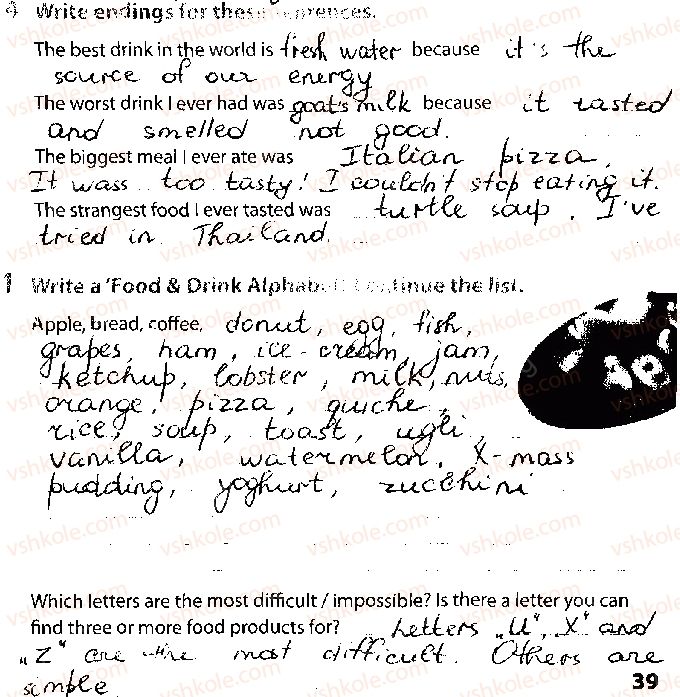 4 Write endings for these sentences.
The best drink in the world is fresh water because it's the
source of our energy
The worst drink I ever had was goat's milk because it tasted
and smelled not good.
The biggest meal I ever ate was Italian pizza.
It wass too tasty! I couldn't stop eating it.
The strangest food I ever tasted was turtle soup. I've
tried in Thailand.
1 Write a 'Food & Drink Alphabet'. Continue the list.
Apple, bread, coffee, donut, egg, fish,
grapes, ham, ice-cream, jam,
ketchup, lobster, milk, nuts,
orange, pizza, quiche,
rice, soup, toast, ugli,
vanilla, watermelon, X-mass
pudding, yoghurt, zucchini
Which letters are the most difficult / impossible? Is there a letter you can
find three or more food products for? Letters „U“, X“ and
„Z“ are the most difficult. Others are
simple
39
vshkole.com